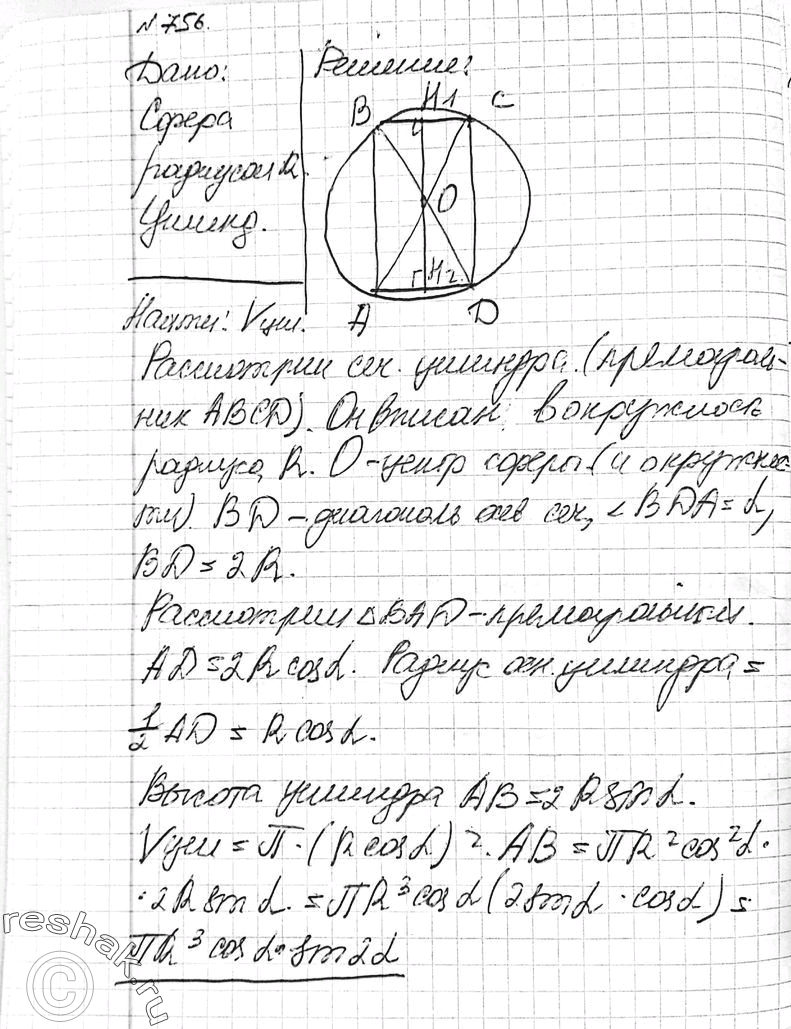 №756.
Дано:
Сфера
радиусом R.
Цилинд.
Найти: Vцил.
Решение:
B H1 C
O
H2
A D
Рассмотрим сеч. цилиндра (прямоуголь-
ник ABCD). Он вписан в окружность
радиуса R. O - центр сферы (и окружнос-
ти). BD - диагональ осев сеч, ∠BDA = α,
BD = 2R.
Рассмотрим △BAD - прямоугольный.
AD = 2R cosα. Радиус осн. цилиндра =
1/2 AD = R cosα.
Высота цилиндра AB = 2R sinα.
Vцил = π · (R cosα)². AB = πR² cos²α ·
· 2R sinα. = πR³ cosα (2sinα · cosα) =
πR³ cosα · sin2α
reshak.ru
©